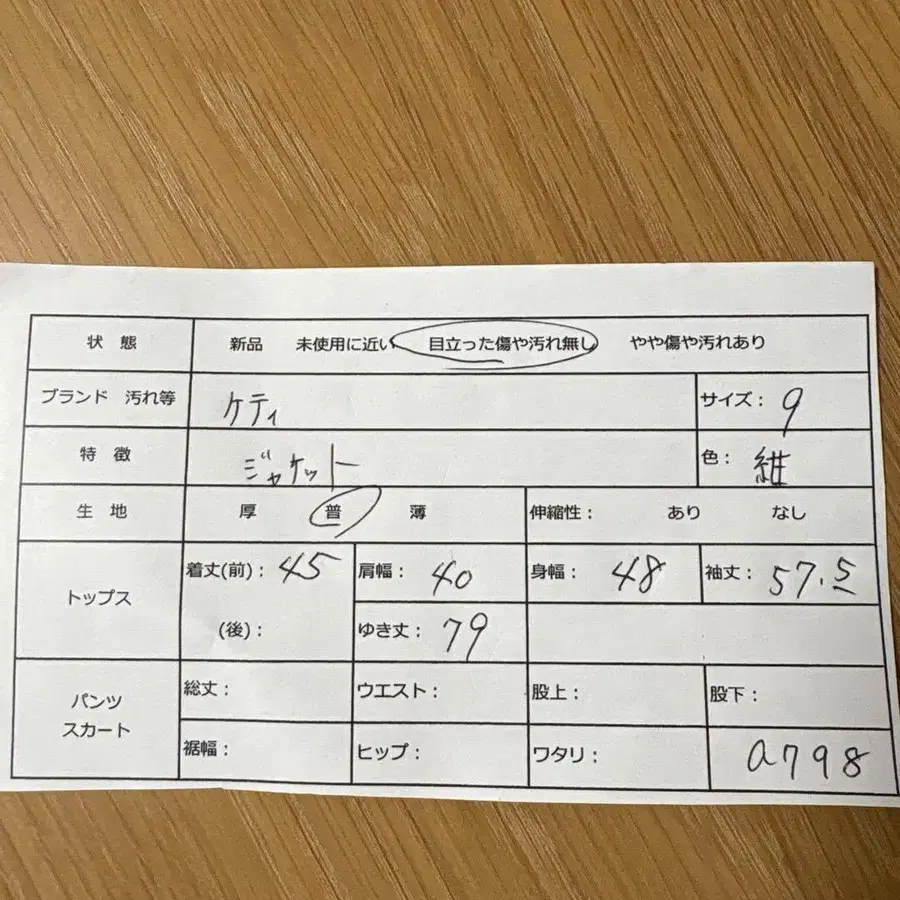 状 態 新品 未使用に近い 目立った傷や汚れ無し やや傷や汚れあり
ブランド 汚れ等 ケティ サイズ： 9
特 徴 ジャケット 色： 紺
生 地 厚 普 薄 伸縮性： あり なし
トップス 着丈(前)： 45 肩幅： 40 身幅： 48 袖丈： 57.5
(後)： ゆき丈： 79
パンツ スカート 総丈： ウエスト： 股上： 股下：
裾幅： ヒップ： ワタリ： a798